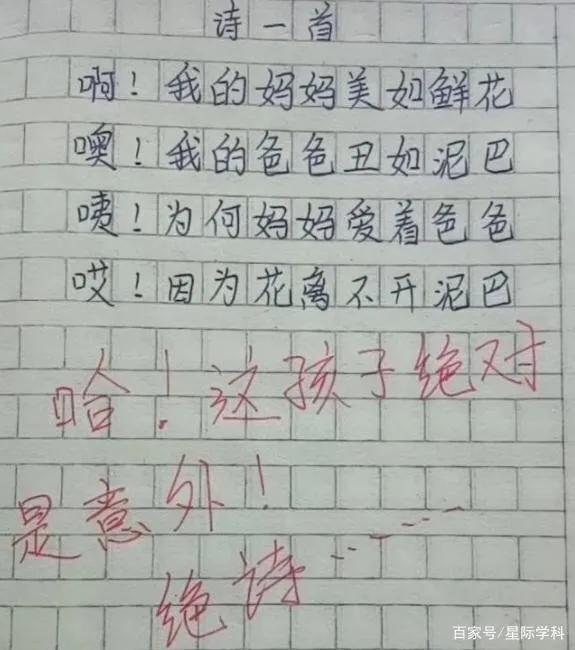 诗一首
啊！我的妈妈美如鲜花
噢！我的爸爸丑如泥巴
咦！为何妈妈爱着爸爸
哎！因为花离不开泥巴
哈！这孩子绝对
是意外！
绝诗……
百家号/星际学科